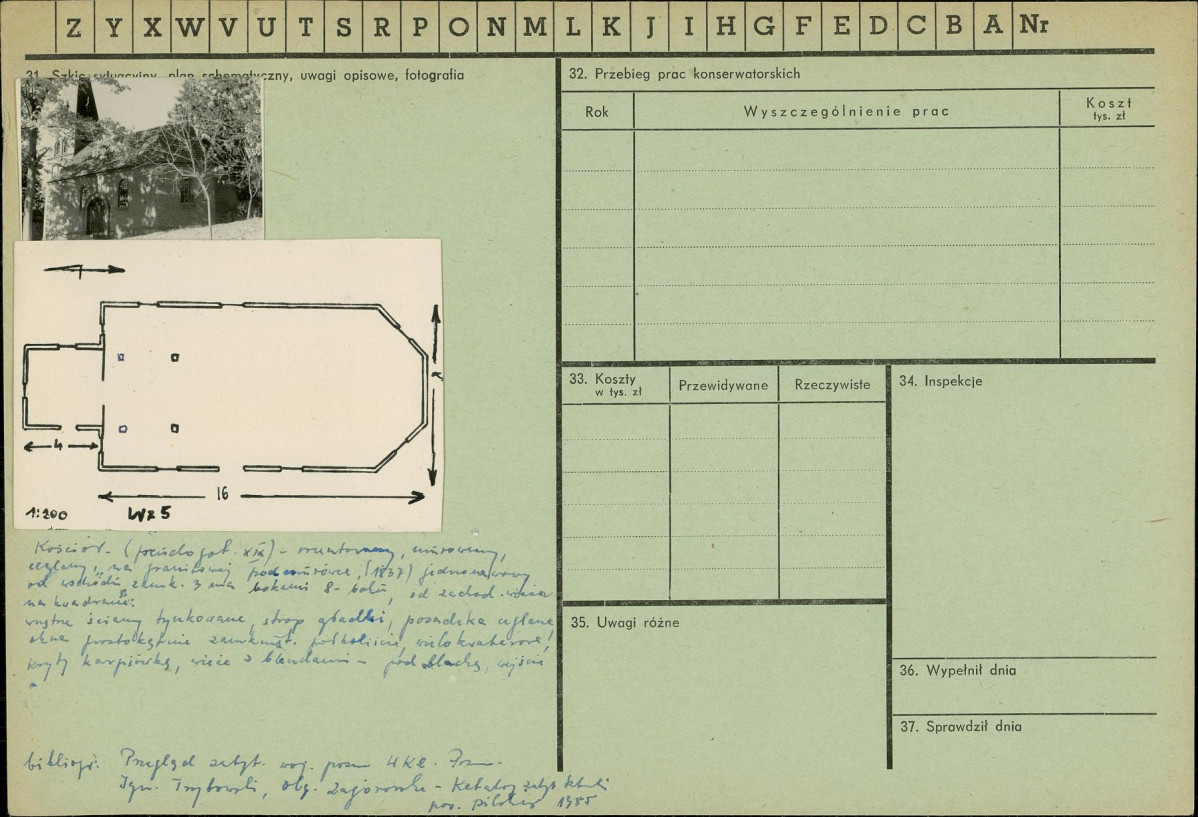 Z Y X W V U T S R P O N M L K J I H G F E D C B A Nr
31. Szkic sytuacyjny, plan schematyczny, uwagi opisowe, fotografia
4
16
1:200
Kościół - (pseudogot. XIX) - orientowany, murowany,
ceglany, na granitowej podmurówce, (1837) jednonawowy
od wschodu zamk. 3 ma bokami 8-boku, od zachod. wieża
na kwadracie.
wnętrze ściany tynkowane, strop gładki, posadzka ceglana
okna prostokątnie zamknięt. półkoliście, wielokwaterowe,
kryty karpiówką, wieża z blendami - pod blachą, wejście
bibliogr: Przegląd zabyt. woj. pozn. WKZ. Pozn.
Ign. Trybowski, Olg. Zagórowska - Katalog zabyt. Sztuki
pow. pilski 1955
32. Przebieg prac konserwatorskich
Rok
Wyszczególnienie prac
Koszt
tys. zł
33. Koszty
w tys. zł
Przewidywane
Rzeczywiste
34. Inspekcje
35. Uwagi różne
36. Wypełnił dnia
37. Sprawdził dnia